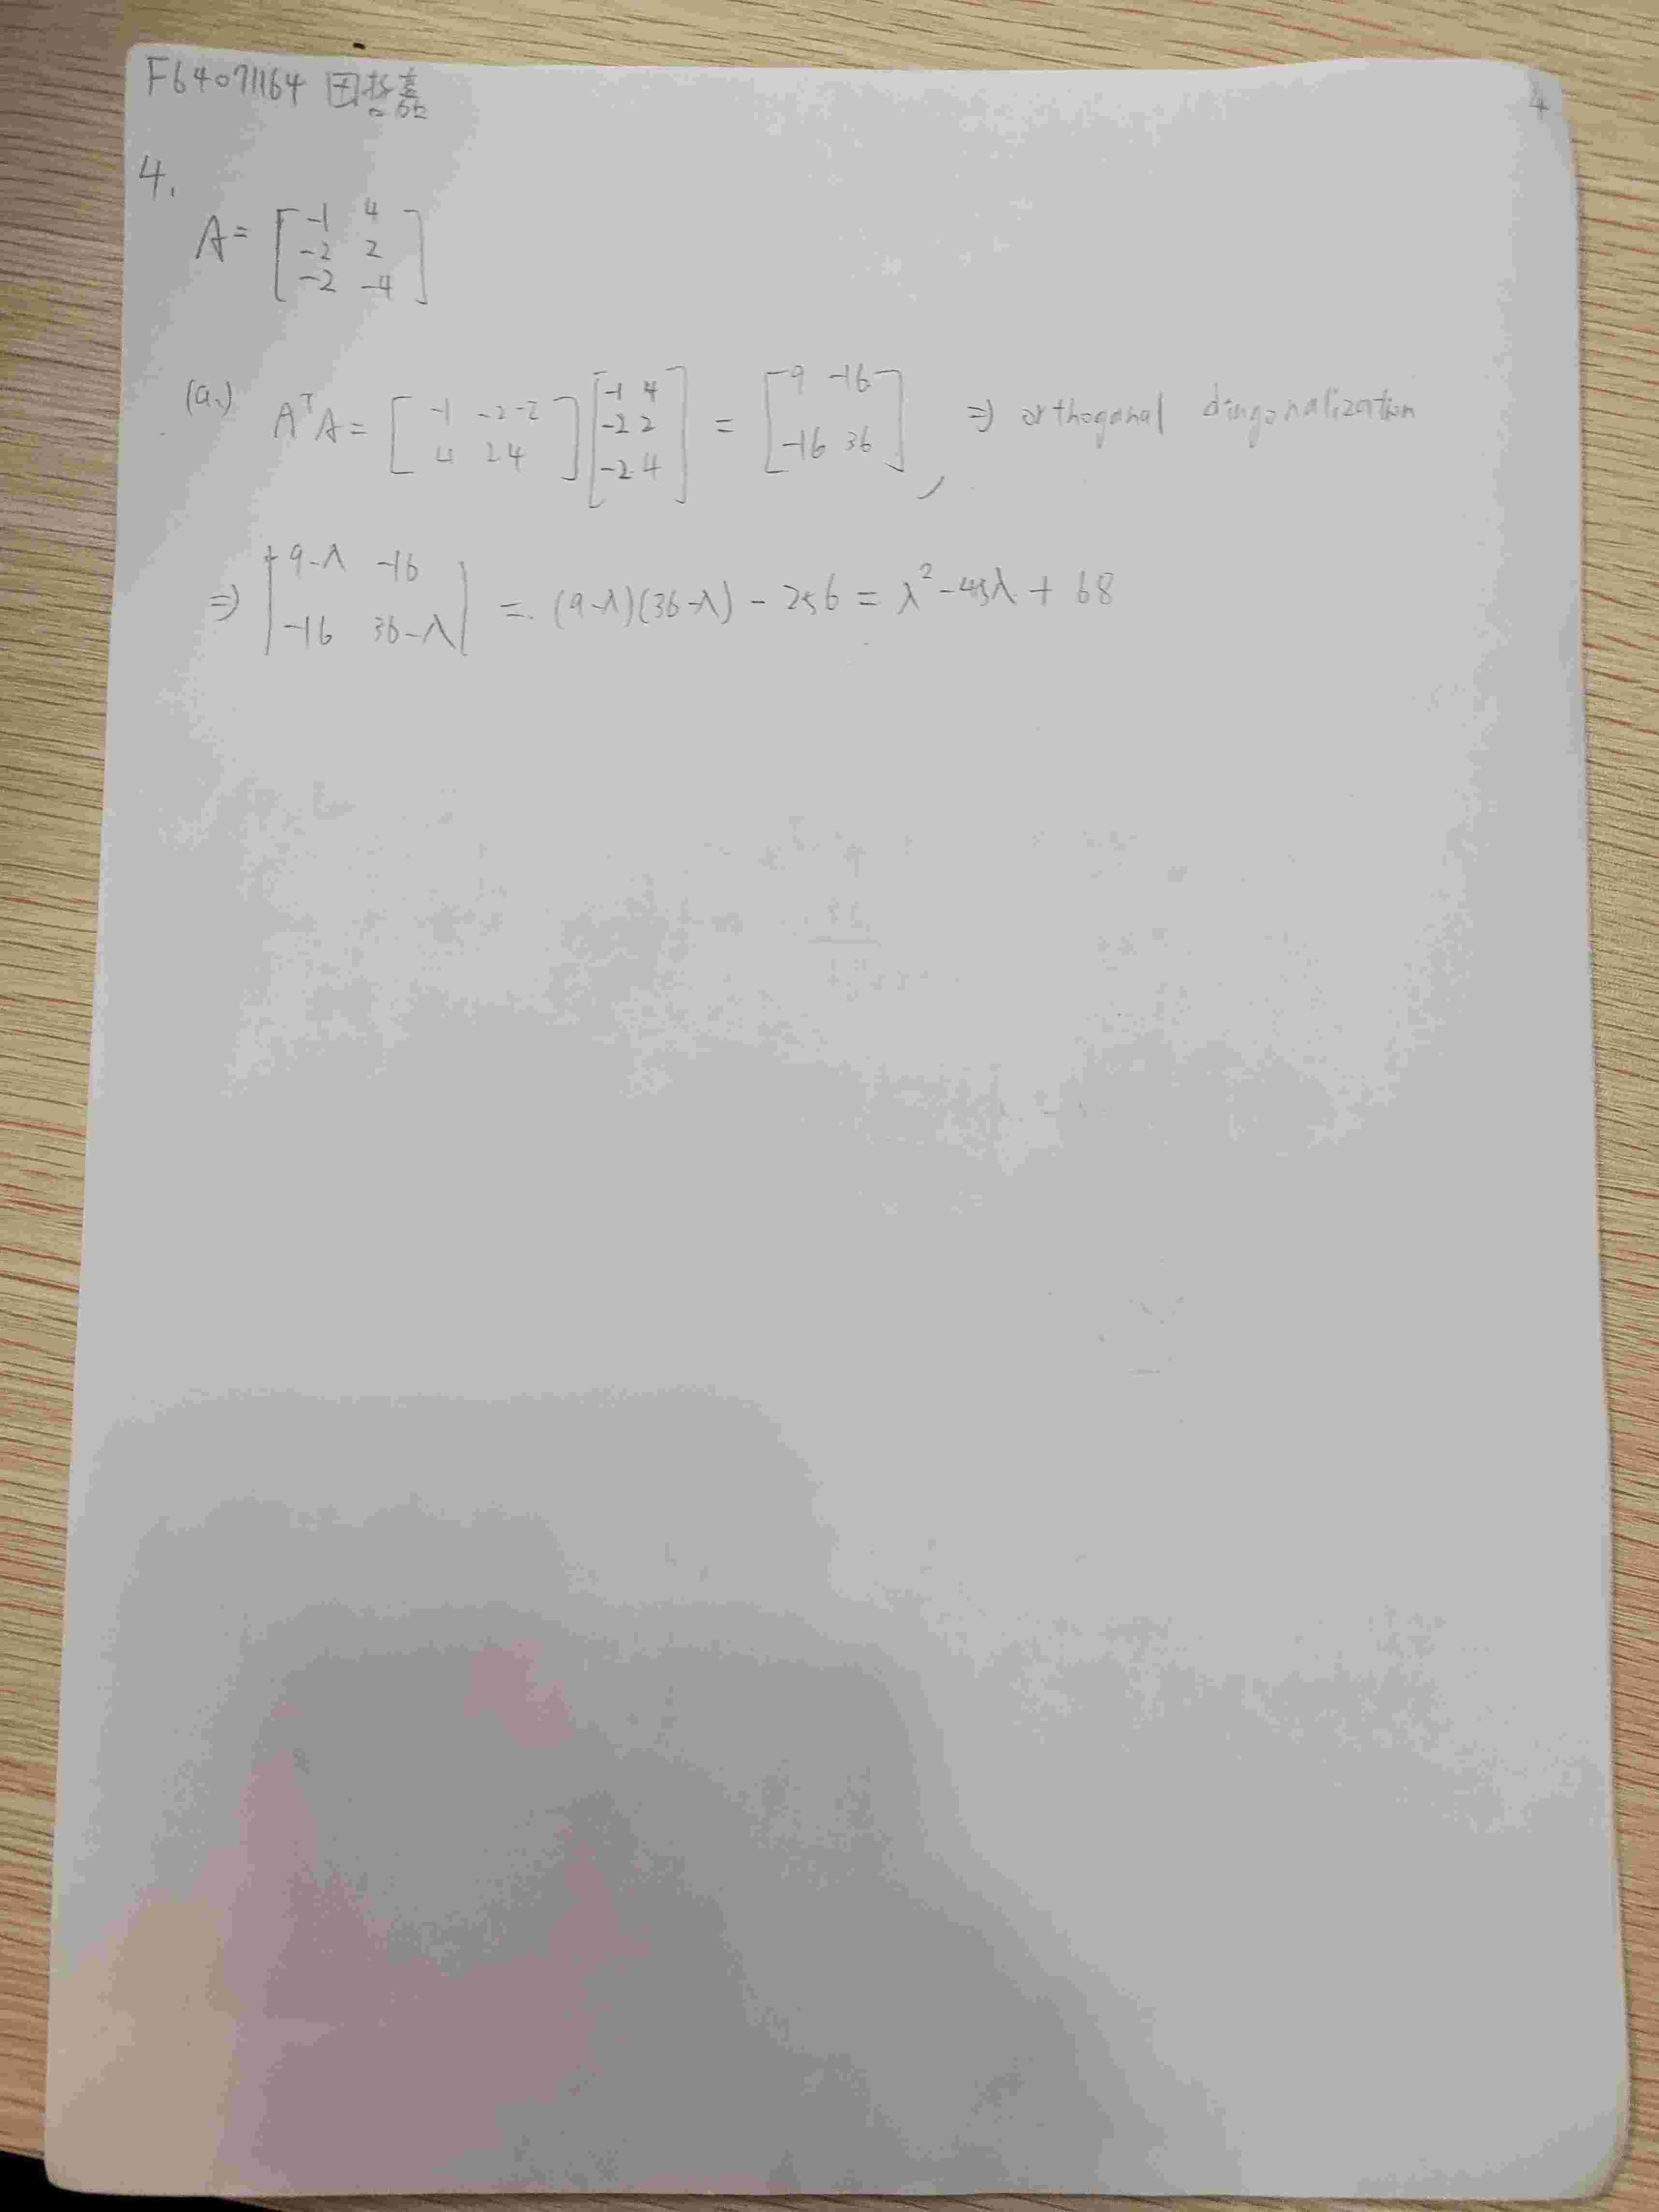 F64071164 田哲嘉
4
4.
A = [ -1 4 ; -2 2 ; -2 -4 ]
(a.) AᵀA = [ -1 -2 -2 ; 4 2 4 ] [ -1 4 ; -2 2 ; -2 4 ] = [ 9 -16 ; -16 36 ] , ⇒ orthogonal diagonalization
⇒ | 9-λ -16 ; -16 36-λ | = (9-λ)(36-λ) - 256 = λ² - 45λ + 68